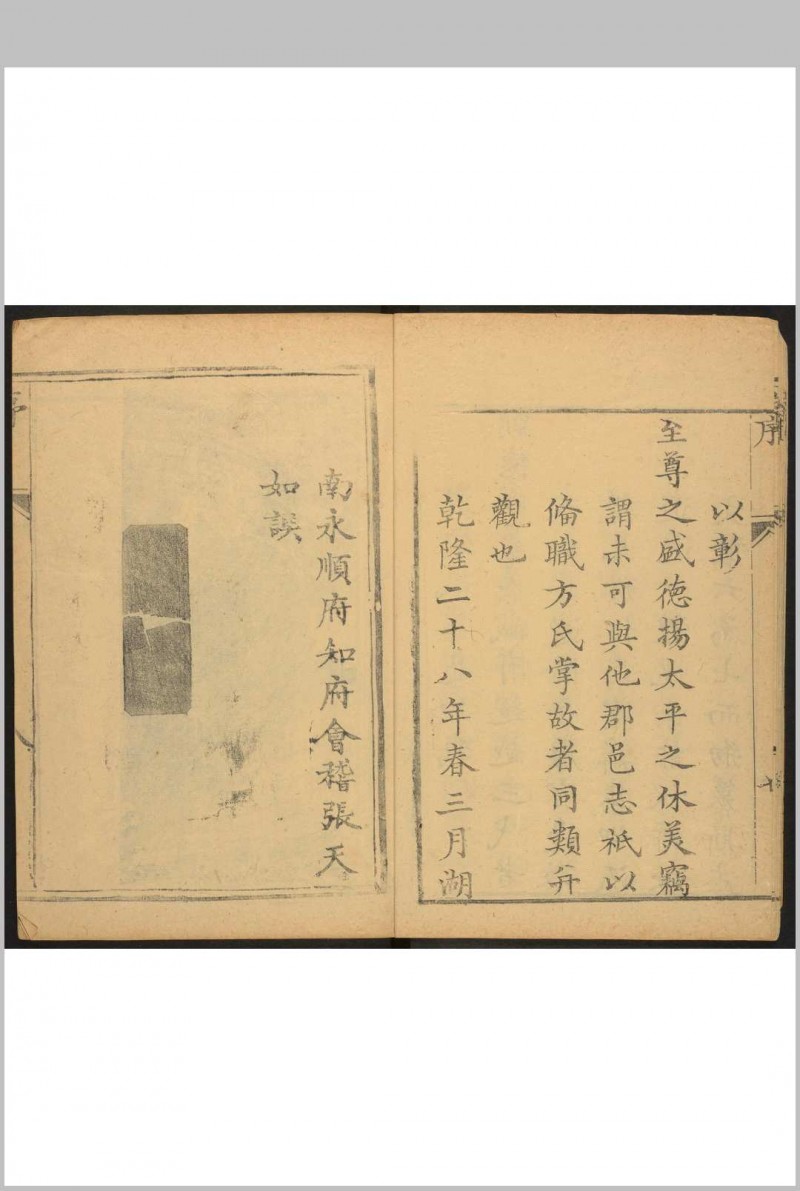 序
以彰
至尊之盛德揚太平之休美竊
謂未可與他郡邑志祇以
俻職方氏掌故者同類并
觀也
乾隆二十八年春三月湖
南永順府知府會稽張天
如譔